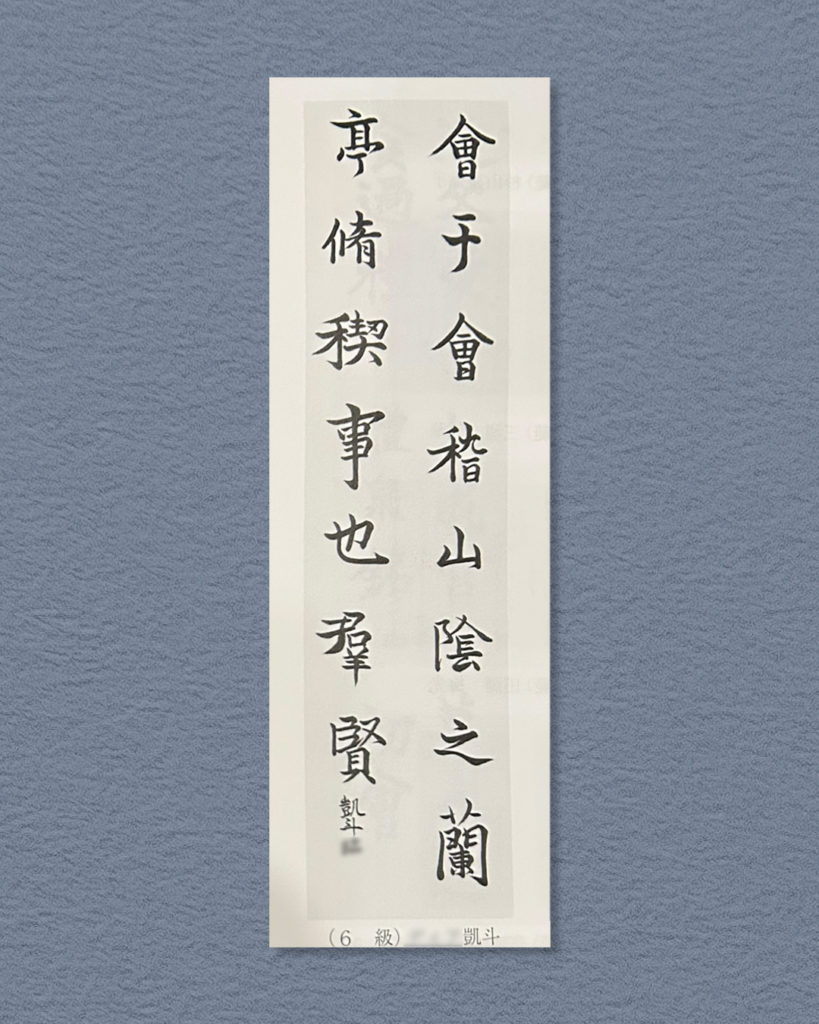 會于會稽山陰之蘭
亭脩稧事也羣賢
凱斗
(6 級) 凱斗